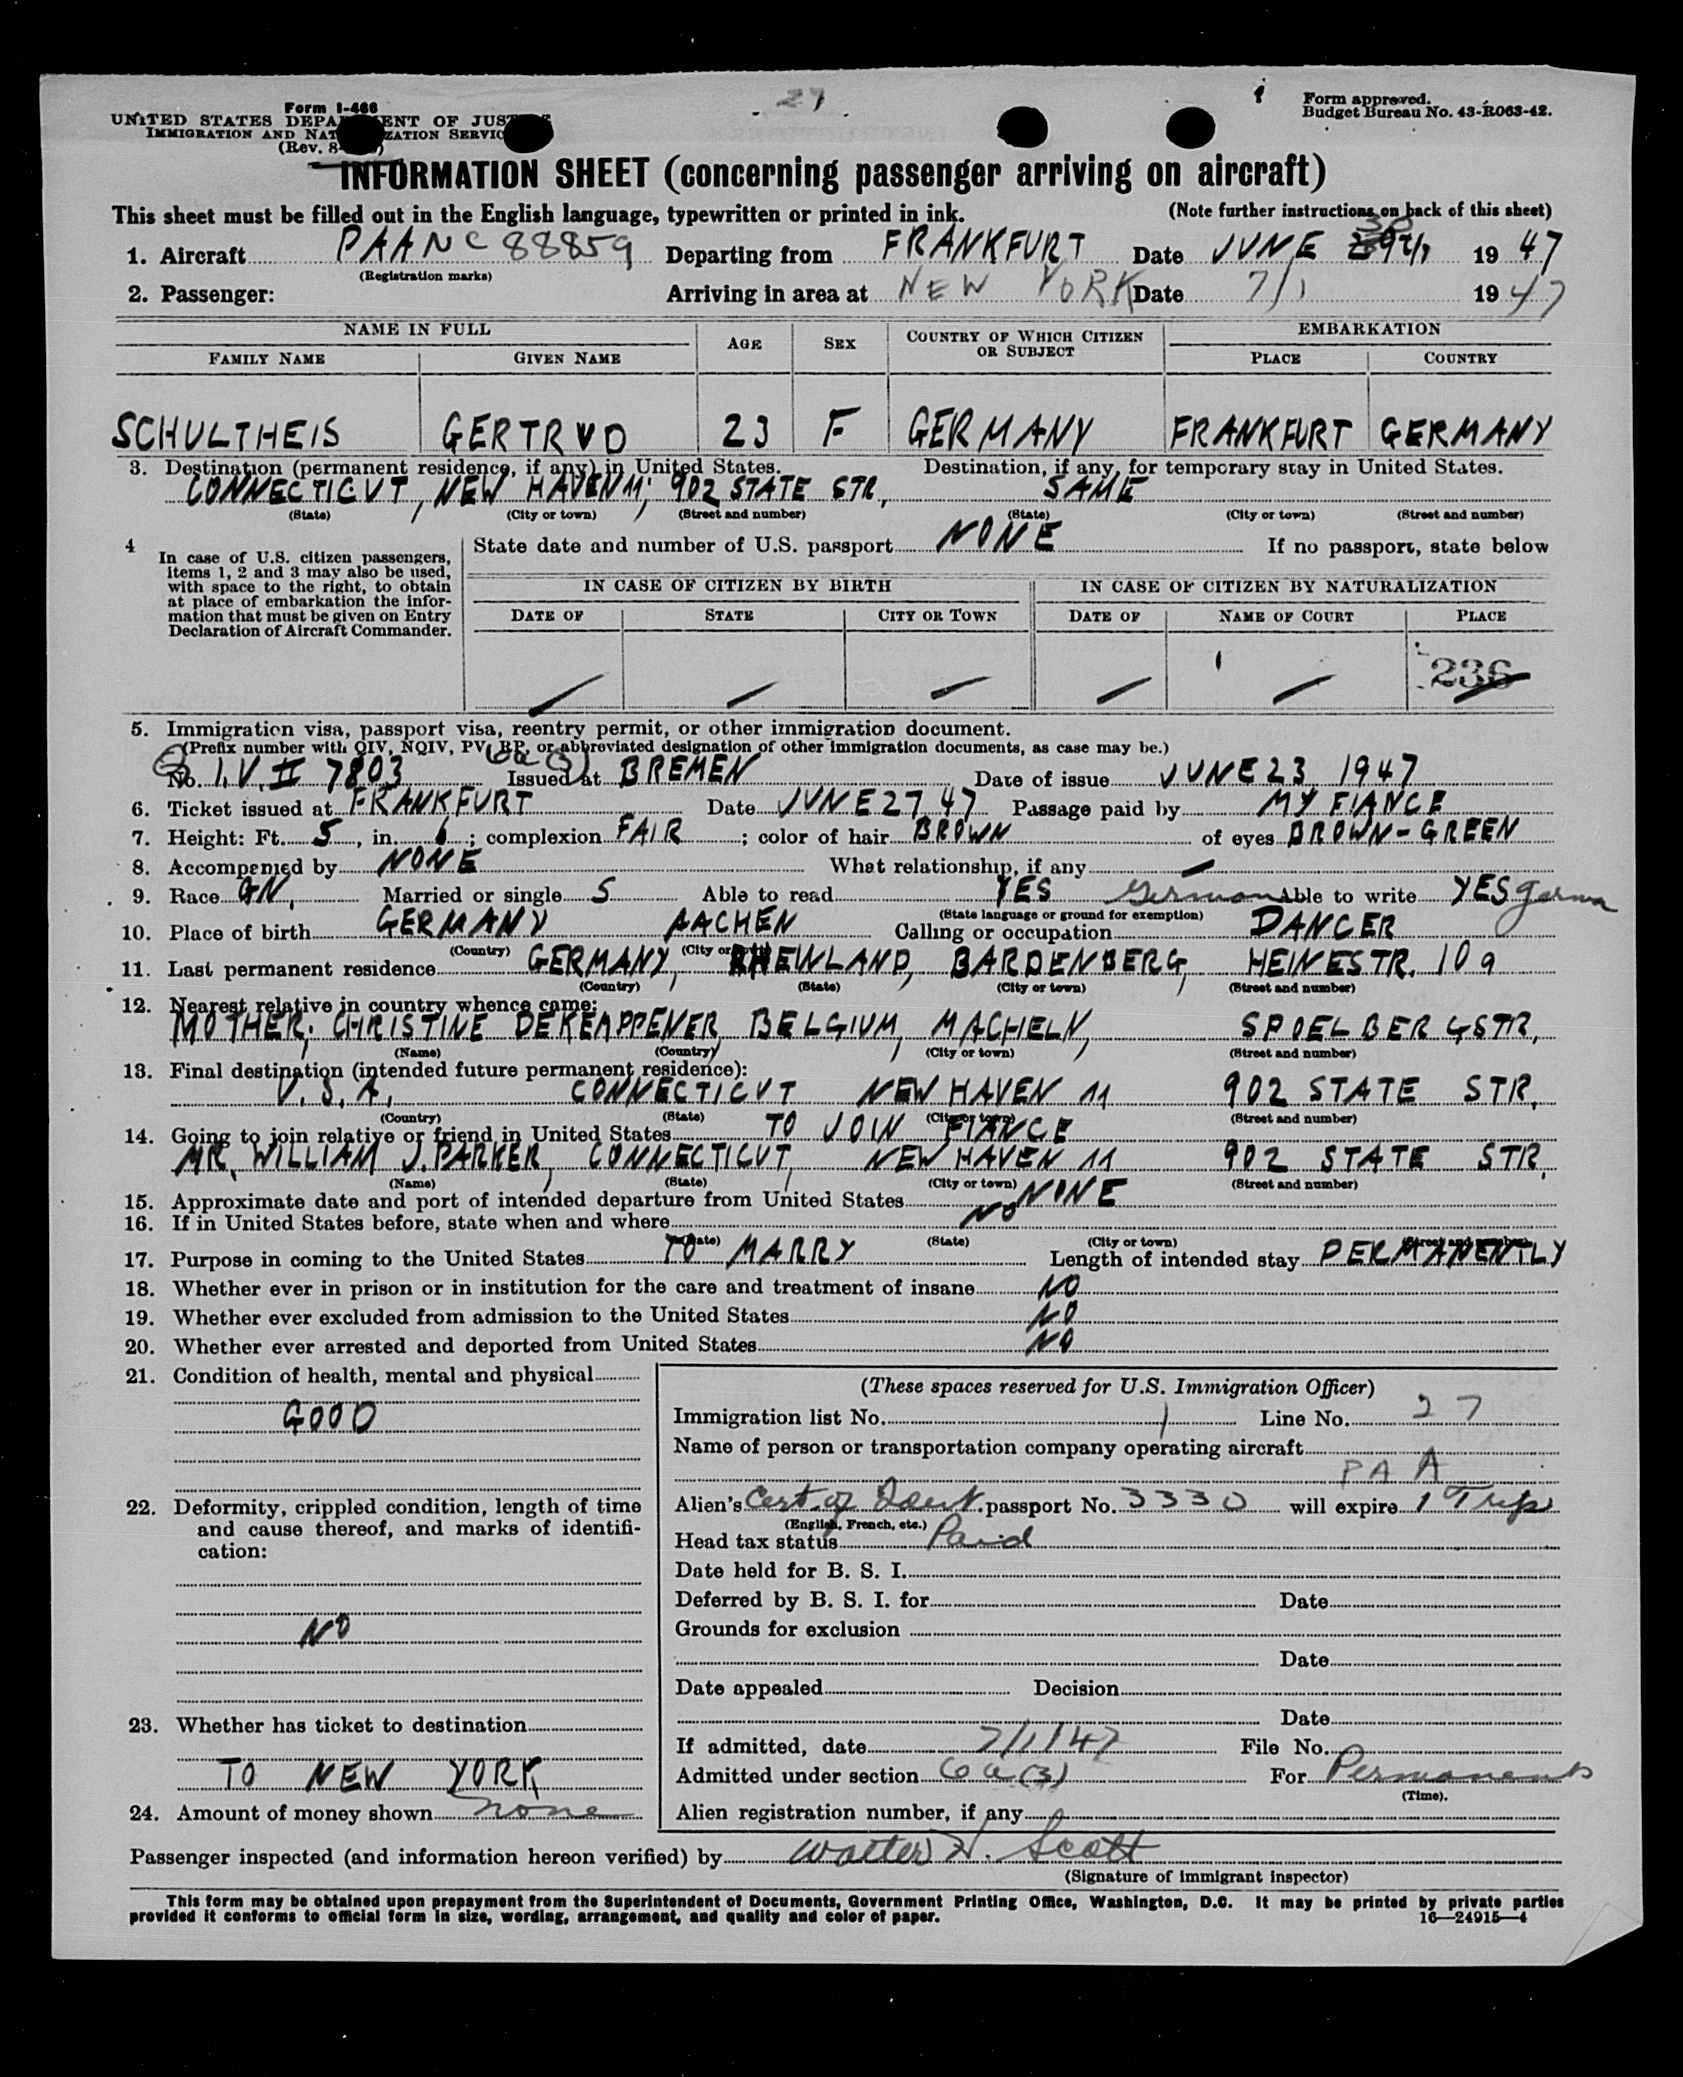 27
Form I-466
UNITED STATES DEPA ENT OF JUS
IMMIGRATION AND NAT ZATION SERVIC
(Rev. 8-
Form approved.
Budget Bureau No. 43-R063-42.
INFORMATION SHEET (concerning passenger arriving on aircraft)
This sheet must be filled out in the English language, typewritten or printed in ink. (Note further instructions on back of this sheet)
1. Aircraft PAA NC 88859 Departing from FRANKFURT Date JUNE 1947
(Registration marks)
2. Passenger: Arriving in area at NEW YORK Date 7/1 1947
NAME IN FULL
FAMILY NAME GIVEN NAME AGE SEX COUNTRY OF WHICH CITIZEN OR SUBJECT EMBARKATION
PLACE COUNTRY
SCHULTHEIS GERTRUD 23 F GERMANY FRANKFURT GERMANY
3. Destination (permanent residence, if any) in United States. Destination, if any, for temporary stay in United States.
CONNECTICUT, NEW HAVEN 11; 902 STATE STR, SAME
(State) (City or town) (Street and number) (State) (City or town) (Street and number)
4 In case of U.S. citizen passengers, items 1, 2 and 3 may also be used, with space to the right, to obtain at place of embarkation the information that must be given on Entry Declaration of Aircraft Commander.
State date and number of U.S. passport NONE If no passport, state below
IN CASE OF CITIZEN BY BIRTH IN CASE OF CITIZEN BY NATURALIZATION
DATE OF STATE CITY OR TOWN DATE OF NAME OF COURT PLACE
236
5. Immigration visa, passport visa, reentry permit, or other immigration document.
(Prefix number with QIV, NQIV, PV, RP, or abbreviated designation of other immigration documents, as case may be.)
Q 6a(3)
No. I.V. II 7803 Issued at BREMEN Date of issue JUNE 23 1947
6. Ticket issued at FRANKFURT Date JUNE 27 47 Passage paid by MY FIANCE
7. Height: Ft. 5, in. 6; complexion FAIR; color of hair BROWN of eyes BROWN-GREEN
8. Accompenied by NONE What relationship, if any
9. Race GN, Married or single S Able to read YES German Able to write YES German
(State language or ground for exemption)
10. Place of birth GERMANY AACHEN Calling or occupation DANCER
(Country) (City or
11. Last permanent residence GERMANY, BARDENBERG, HEINESTR. 10a
(Country) (State) (City or town) (Street and number)
12. Nearest relative in country whence came:
MOTHER; CHRISTINE DEKEMPPENER, BELGIUM, MACHELN, SPOELBERGSTR,
(Name) (Country) (City or town) (Street and number)
13. Final destination (intended future permanent residence):
U.S.A., CONNECTICUT NEW HAVEN 11 902 STATE STR.
(Country) (State) (City or town) (Street and number)
14. Going to join relative or friend in United States TO JOIN FIANCE
MR. WILLIAM J. PARKER, CONNECTICUT, NEW HAVEN 11 902 STATE STR.
(Name) (State) (City or town) (Street and number)
15. Approximate date and port of intended departure from United States NONE
16. If in United States before, state when and where NO
(State) (City or town)
17. Purpose in coming to the United States TO MARRY Length of intended stay PERMANENTLY
18. Whether ever in prison or in institution for the care and treatment of insane NO
19. Whether ever excluded from admission to the United States NO
20. Whether ever arrested and deported from United States NO
21. Condition of health, mental and physical
GOOD
22. Deformity, crippled condition, length of time
and cause thereof, and marks of identifi-
cation:
NO
23. Whether has ticket to destination
TO NEW YORK
24. Amount of money shown none
(These spaces reserved for U.S. Immigration Officer)
Immigration list No. 1 Line No. 27
Name of person or transportation company operating aircraft
PAA
Alien's Cert. of Ident. passport No. 3330 will expire 1 Trip
(English, French, etc.)
Head tax status Paid
Date held for B. S. I.
Deferred by B. S. I. for Date
Grounds for exclusion
Date
Date appealed Decision
Date
If admitted, date 7/1/47 File No.
Admitted under section 6a(3) For Permanent
(Time).
Alien registration number, if any
Passenger inspected (and information hereon verified) by Walter H. Scott
(Signature of immigrant inspector)
This form may be obtained upon prepayment from the Superintendent of Documents, Government Printing Office, Washington, D.C. It may be printed by private parties
provided it conforms to official form in size, wording, arrangement, and quality and color of paper. 16—24915—4